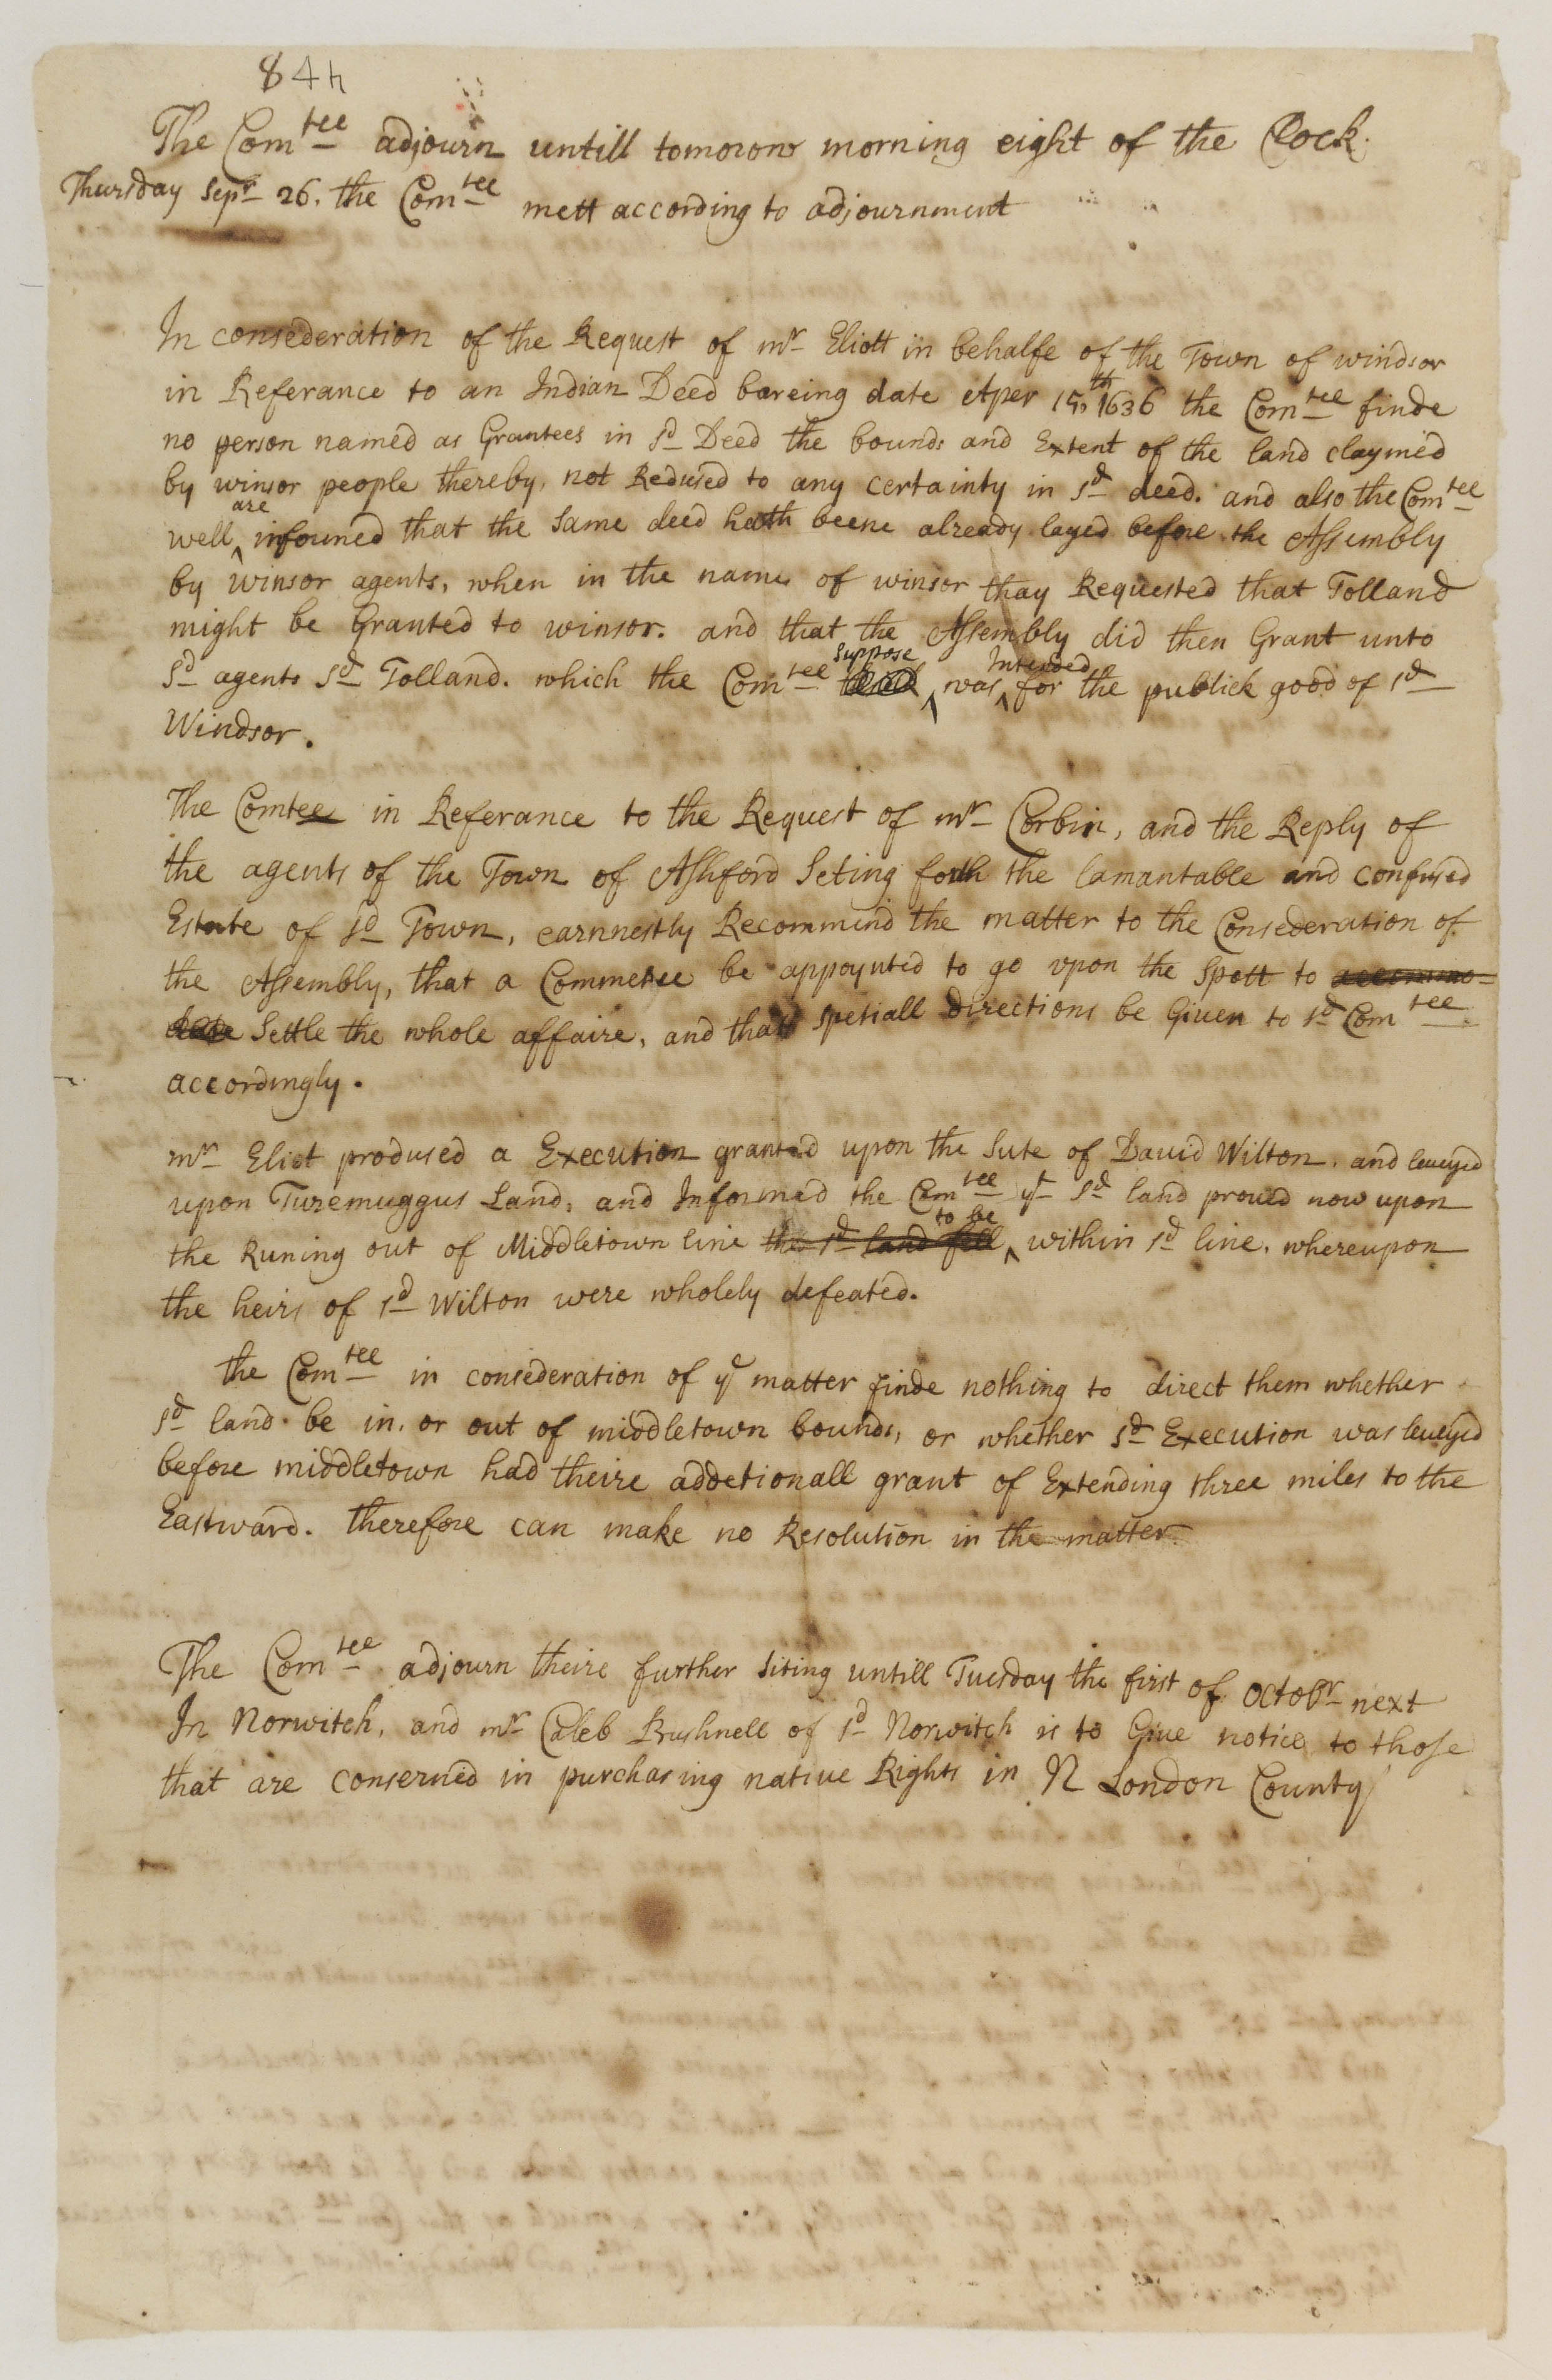 84h
The Com^tee adjourn untill tomorow morning eight of the Clock.
Thursday Sep^r 26. the Com^tee mett according to adjournment
In consederation of the Request of m^r Eliott in behalfe of the Town of windsor
in Referance to an Indian Deed bareing date Aper 15^th 1636 the Com^tee finde
no person named as Grantees in s^d Deed the bounds and Extent of the land claymed
by winsor people thereby, not Redused to any certainty in s^d deed. and also the Com^tee
well are informed that the same deed hath beene already layed before the Assembly
by winsor agents, when in the name of winsor thay Requested that Tolland
might be Granted to winsor. and that the Assembly did then Grant unto
s^d agents s^d Tolland. which the Com^tee Suppose was Intended for the publick good of s^d
Windsor.
The Comtee in Referance to the Request of m^r Corbin, and the Reply of
the agents of the Town of Ashford Seting forth the lamantable and confused
Estate of s^d Town, earnnestly Recommind the matter to the Consederation of
the Assembly, that a Commetee be appoynted to go vpon the Spott to accommo=
date Settle the whole affaire, and that spetiall directions be Given to s^d Com^tee
accordingly.
m^r Eliot prodused a Execution granted upon the Sute of David Wilton. and leueyed
upon Turemuggus Land, and Informed the Com^tee y^t s^d land proued now upon
the Runing out of Middletown line the s^d land fell to be within s^d line. whereupon
the heirs of s^d Wilton were wholely defeated.
the Com^tee in consederation of y^e matter finde nothing to direct them whether
s^d land be in. or out of middletown bounds, or whether s^d Execution was leueyed
before middletown had theire addetionall grant of Extending three miles to the
Eastward. therefore can make no Resolution in the matter
The Com^tee adjourn theire further siting untill Tuesday the first of octob^r next
In Norwitch, and m^r Caleb Bushnell of s^d Norwitch is to Giue notice to those
that are conserned in purchasing natiue Rights in N London County